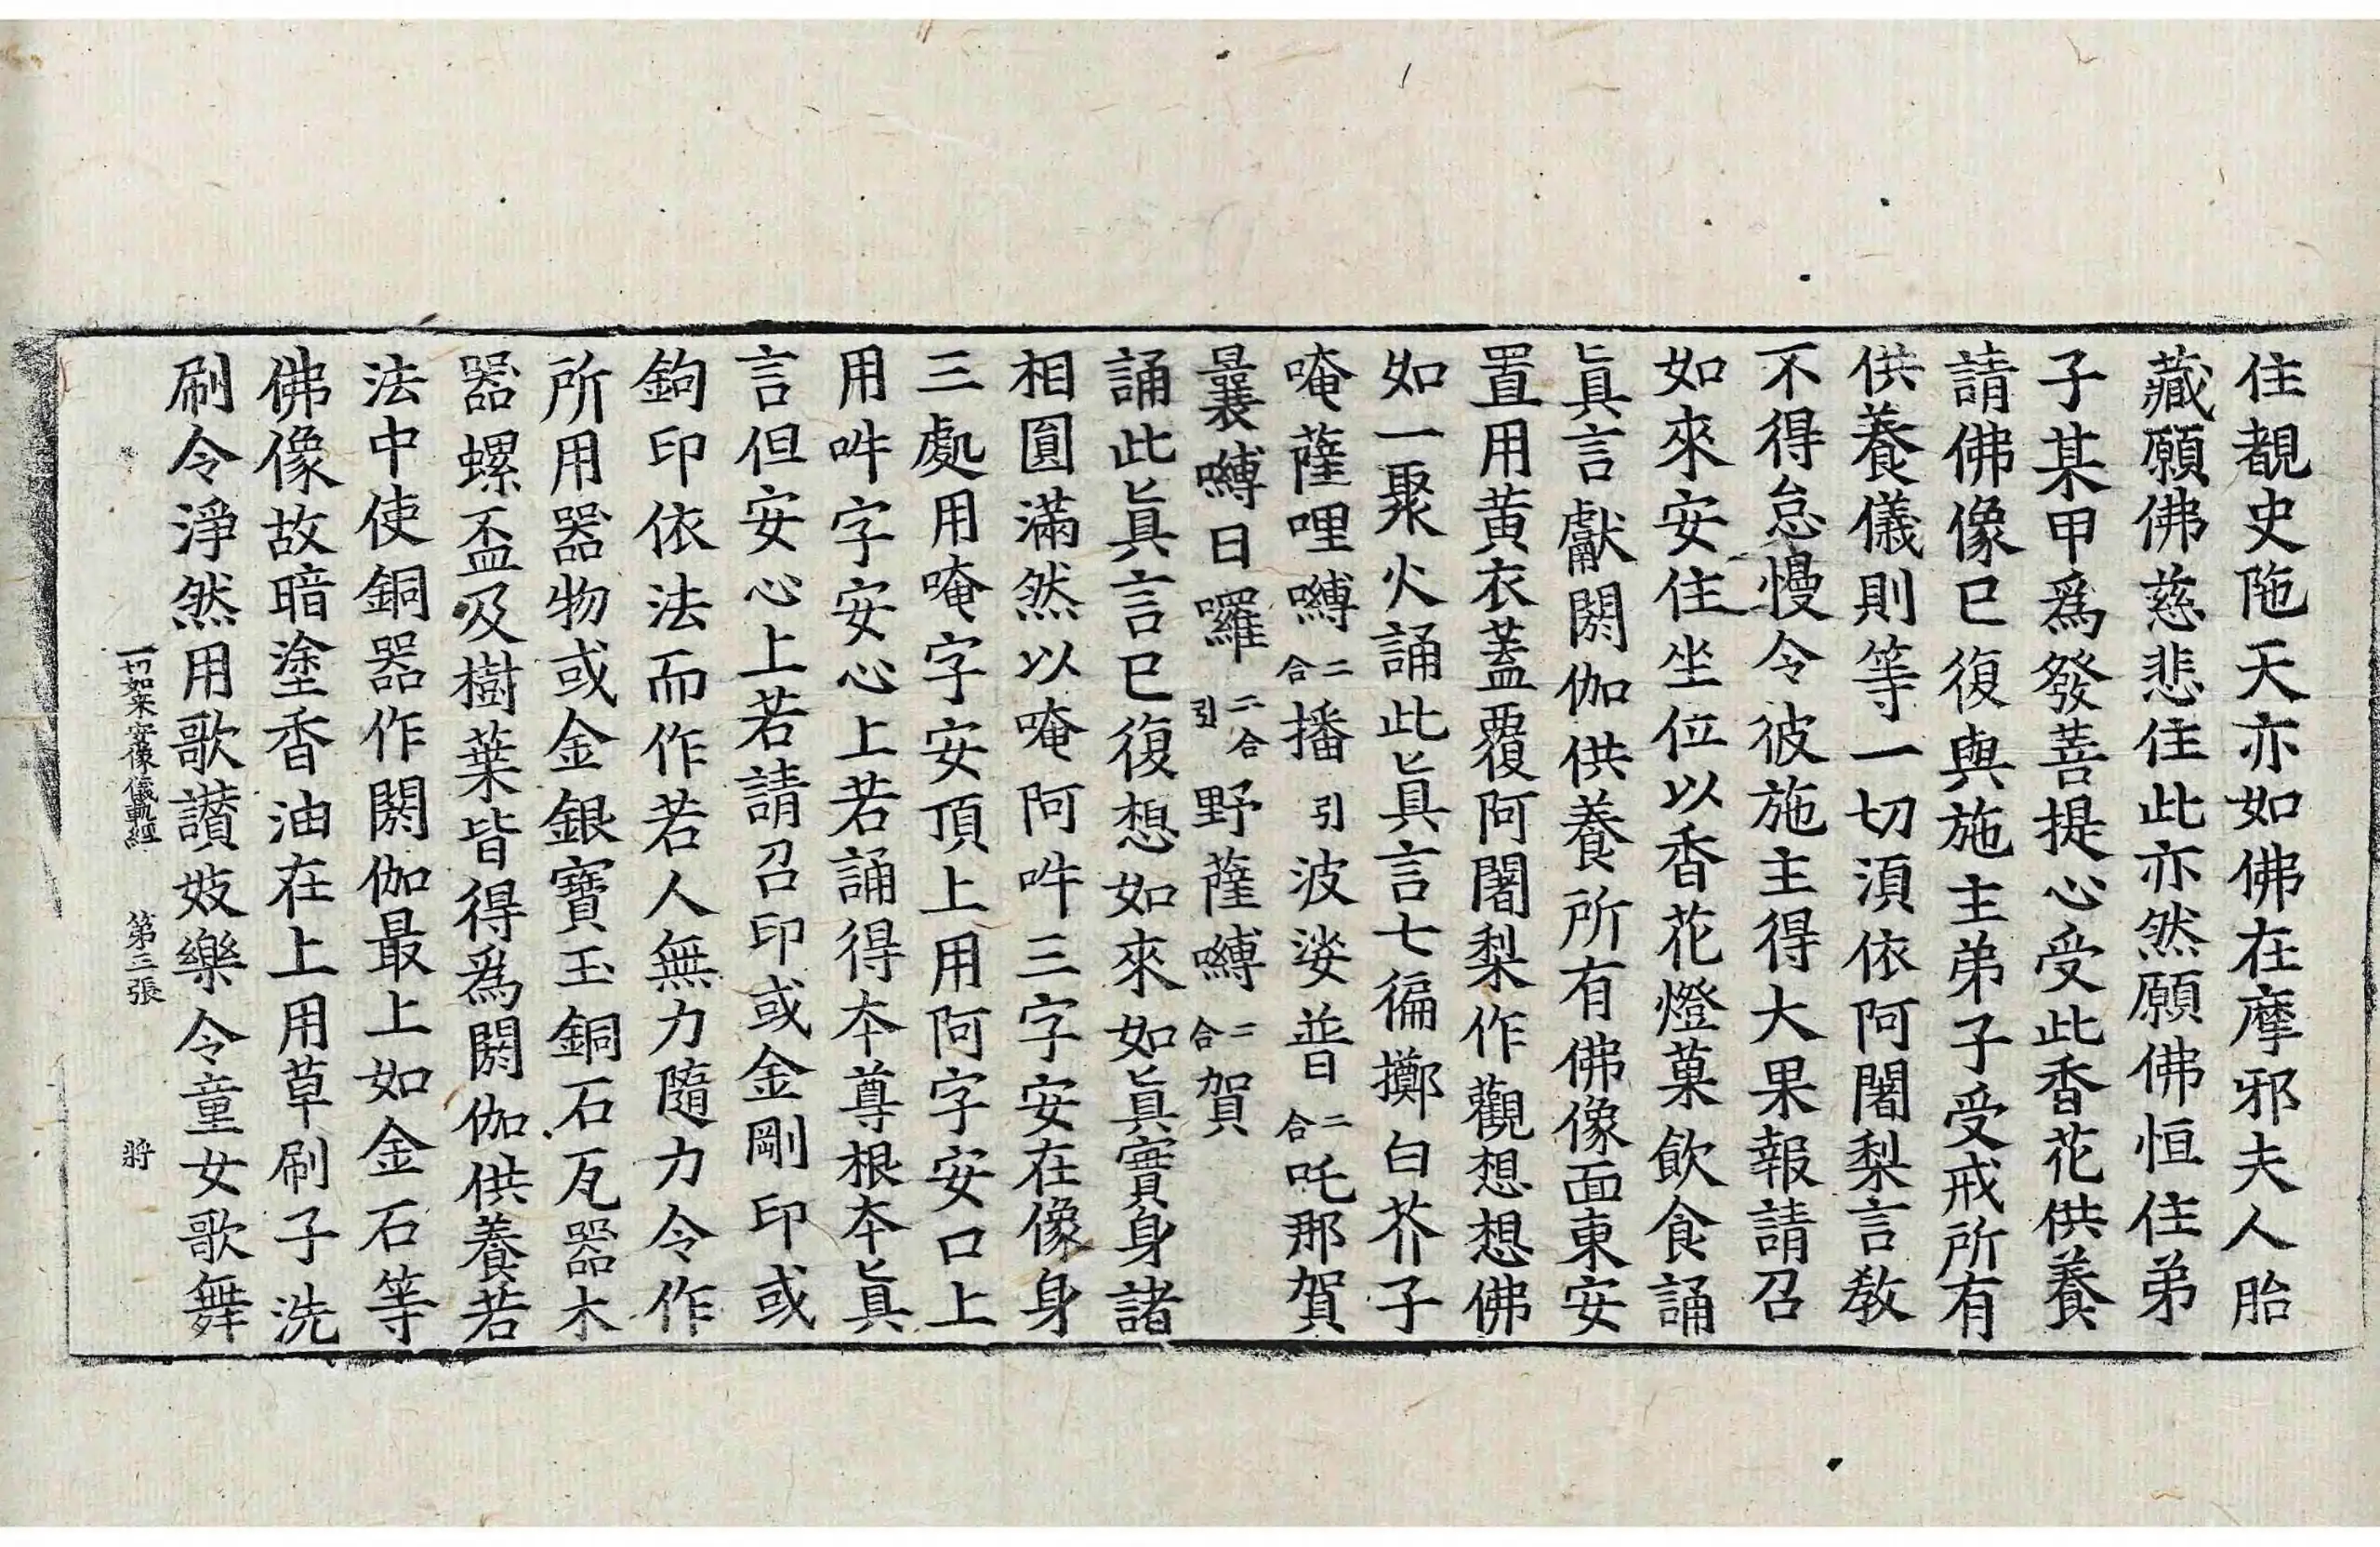 住覩史陁天亦如佛在摩邪夫人胎
藏願佛慈悲住此亦然願佛恒住弟
子某甲爲發菩提心受此香花供養
請佛像已復與施主弟子受戒所有
供養儀則等一切湏依阿闍梨言教
不得怠慢令彼施主得大果報請召
如來安住坐位以香花燈菓飲食誦
眞言獻閼伽供養所有佛像面東安
置用黄衣蓋覆阿闍梨作觀想想佛
如一聚火誦此眞言七徧擲白芥子
唵薩哩嚩二合播引波娑普二合吒那賀
曩嚩日囉二合引野薩嚩二合賀
誦此眞言已復想如來如眞實身諸
相圓滿然以唵阿吽三字安在像身
三處用唵字安頂上用阿字安口上
用吽字安心上若誦得本尊根本眞
言但安心上若請召印或金剛印或
鉤印依法而作若人無力隨力令作
所用器物或金銀寶玉銅石瓦器木
器螺盃及樹葉皆得爲閼伽供養若
法中使銅器作閼伽最上如金石等
佛像故暗塗香油在上用草刷子洗
刷令淨然用歌讃妓樂令童女歌舞
一切如來安像儀軌經 第三張 將